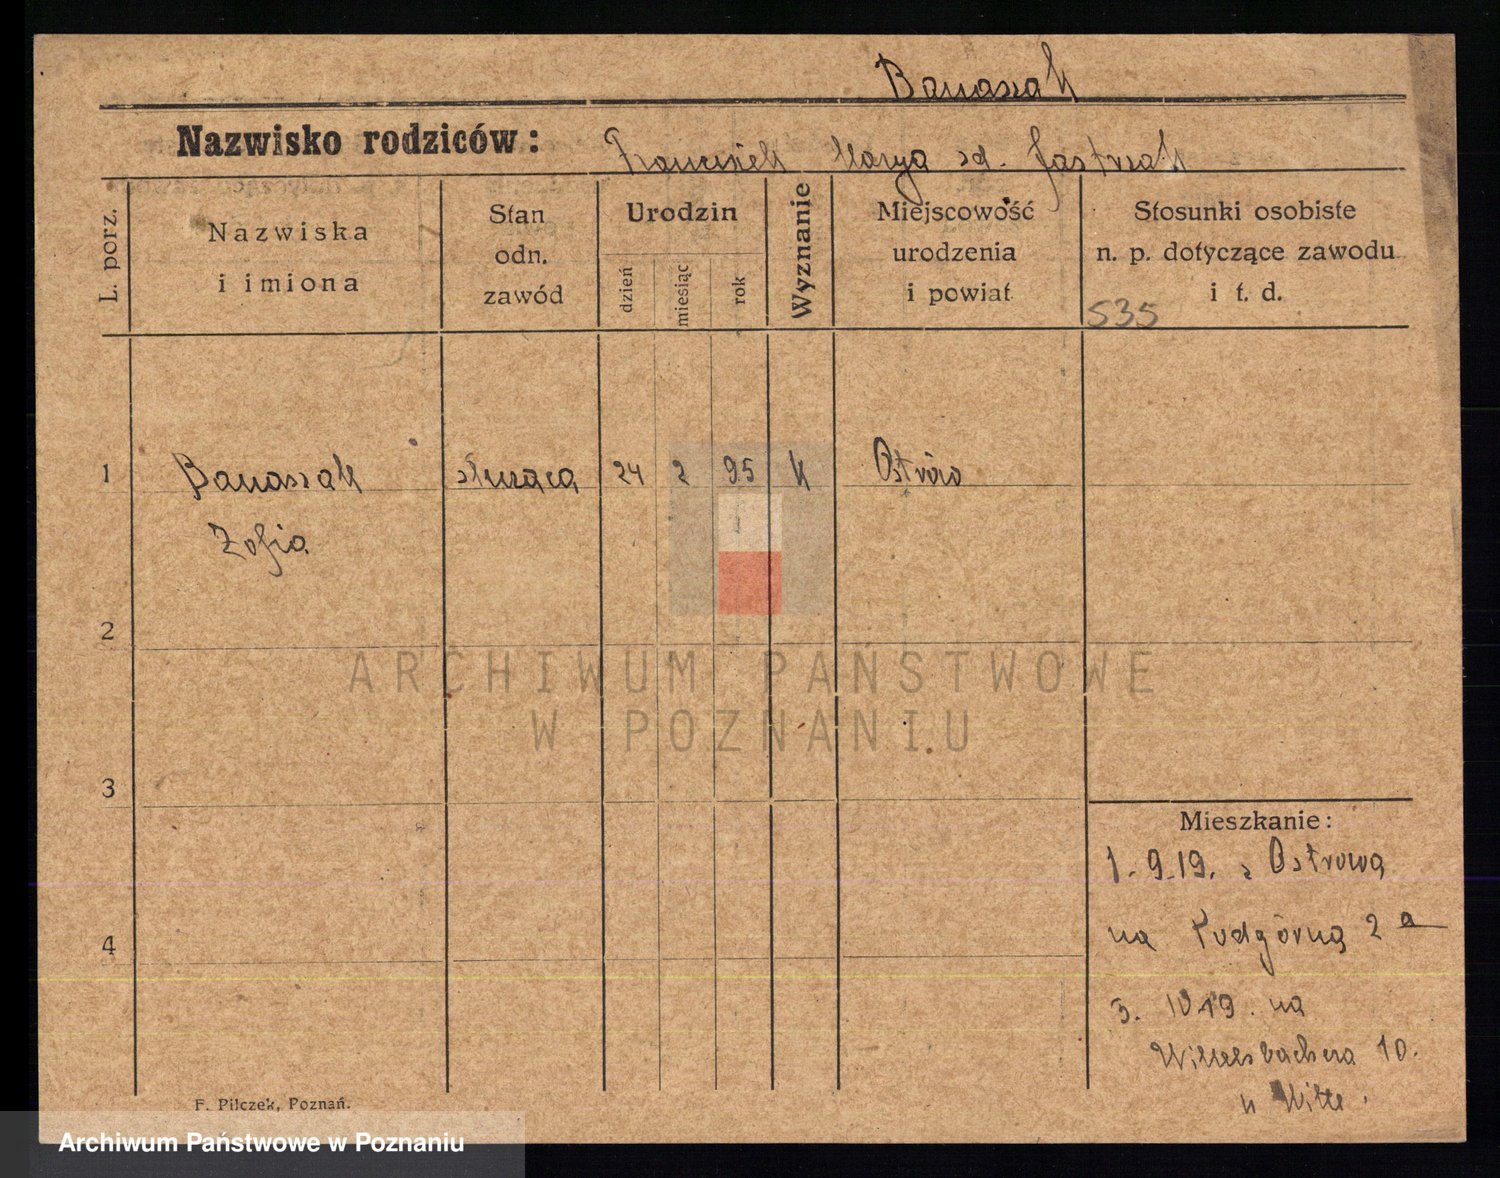 Banaszak
Nazwisko rodziców: Franciszek Marya zd. Jastrzak
L. porz.
Nazwiska
i imiona
Stan
odn.
zawód
Urodzin
dzień
miesiąc
rok
Wyznanie
Miejscowość
urodzenia
i powiat
Stosunki osobiste
n. p. dotyczące zawodu
i t. d.
535
1 Banaszak służąca 24 2 95 k Ostrów
Zofia
2
3
4
Mieszkanie:
1. 9.19. z Ostrowa
na Podgórną 2 a
3. 10 19. na
Wittelsbachera 10.
u Witte.
F. Pilczek, Poznań.
ARCHIWUM PAŃSTWOWE
W POZNANIU
Archiwum Państwowe w Poznaniu